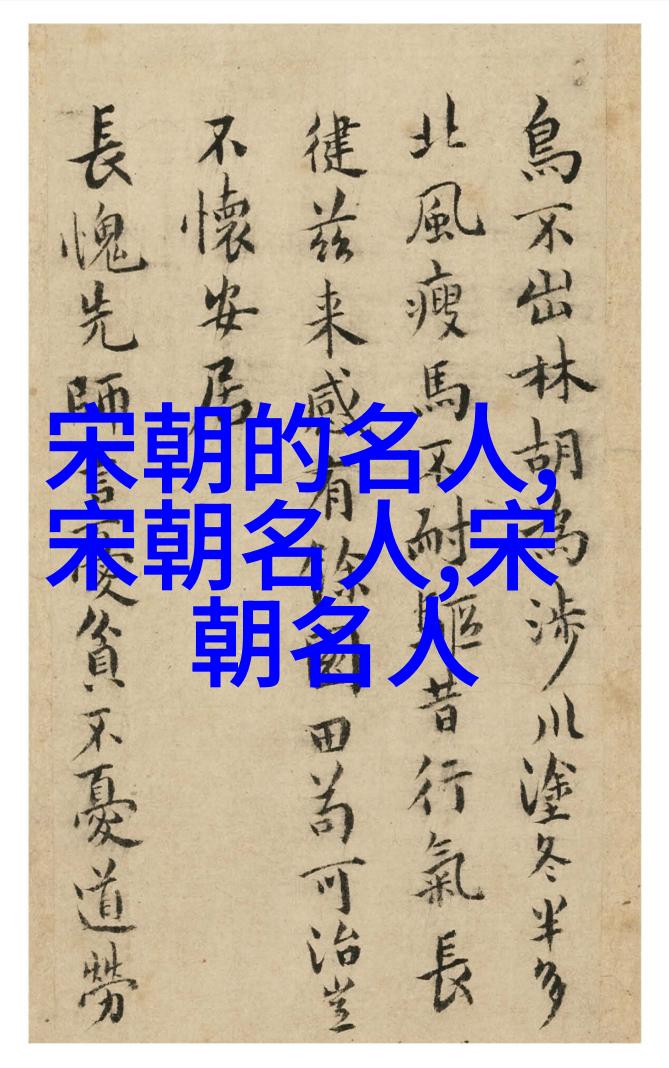 鳥不出林胡為涉川塗冬半多
北風瘦馬不耐驅昔行氣長
健茲来感有餘園田苟可治豈
不懷安居
長愧先師言憂貧不憂道勞
宋朝的名人,
宋朝名人,宋
朝名人